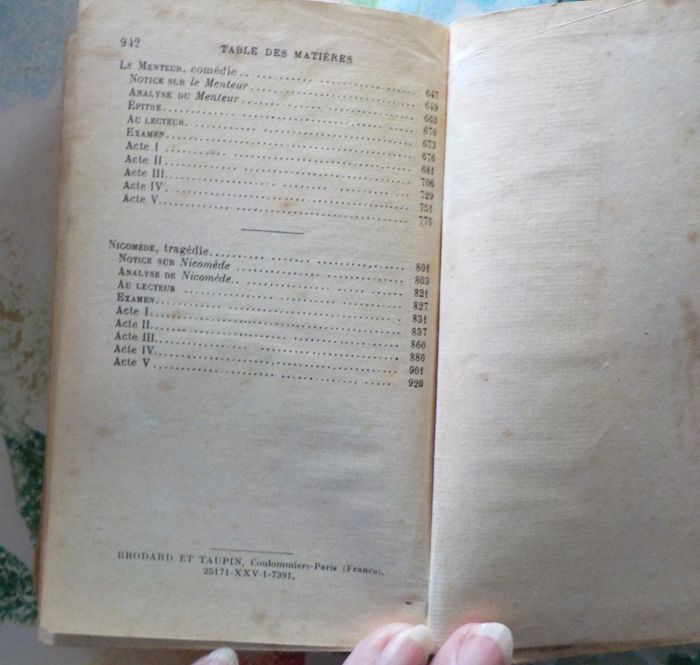 942 TABLE DES MATIÈRES
LE MENTEUR, comédie.. 647
NOTICE SUR le Menteur 649
ANALYSE DU Menteur 663
ÉPITRE. 670
AU LECTEUR. 673
EXAMEN. 676
Acte I 681
Acte II 706
Acte III. 729
Acte IV. 751
Acte V. 775
NICOMÈDE, tragédie. 801
NOTICE SUR Nicomède 803
ANALYSE DE Nicomède.. 821
AU LECTEUR 827
EXAMEN. 831
Acte I. 837
Acte II. 860
Acte III. 880
Acte IV. 901
Acte V 920
BRODARD ET TAUPIN, Coulommiers-Paris (France).
25171-XXV-1-7391.